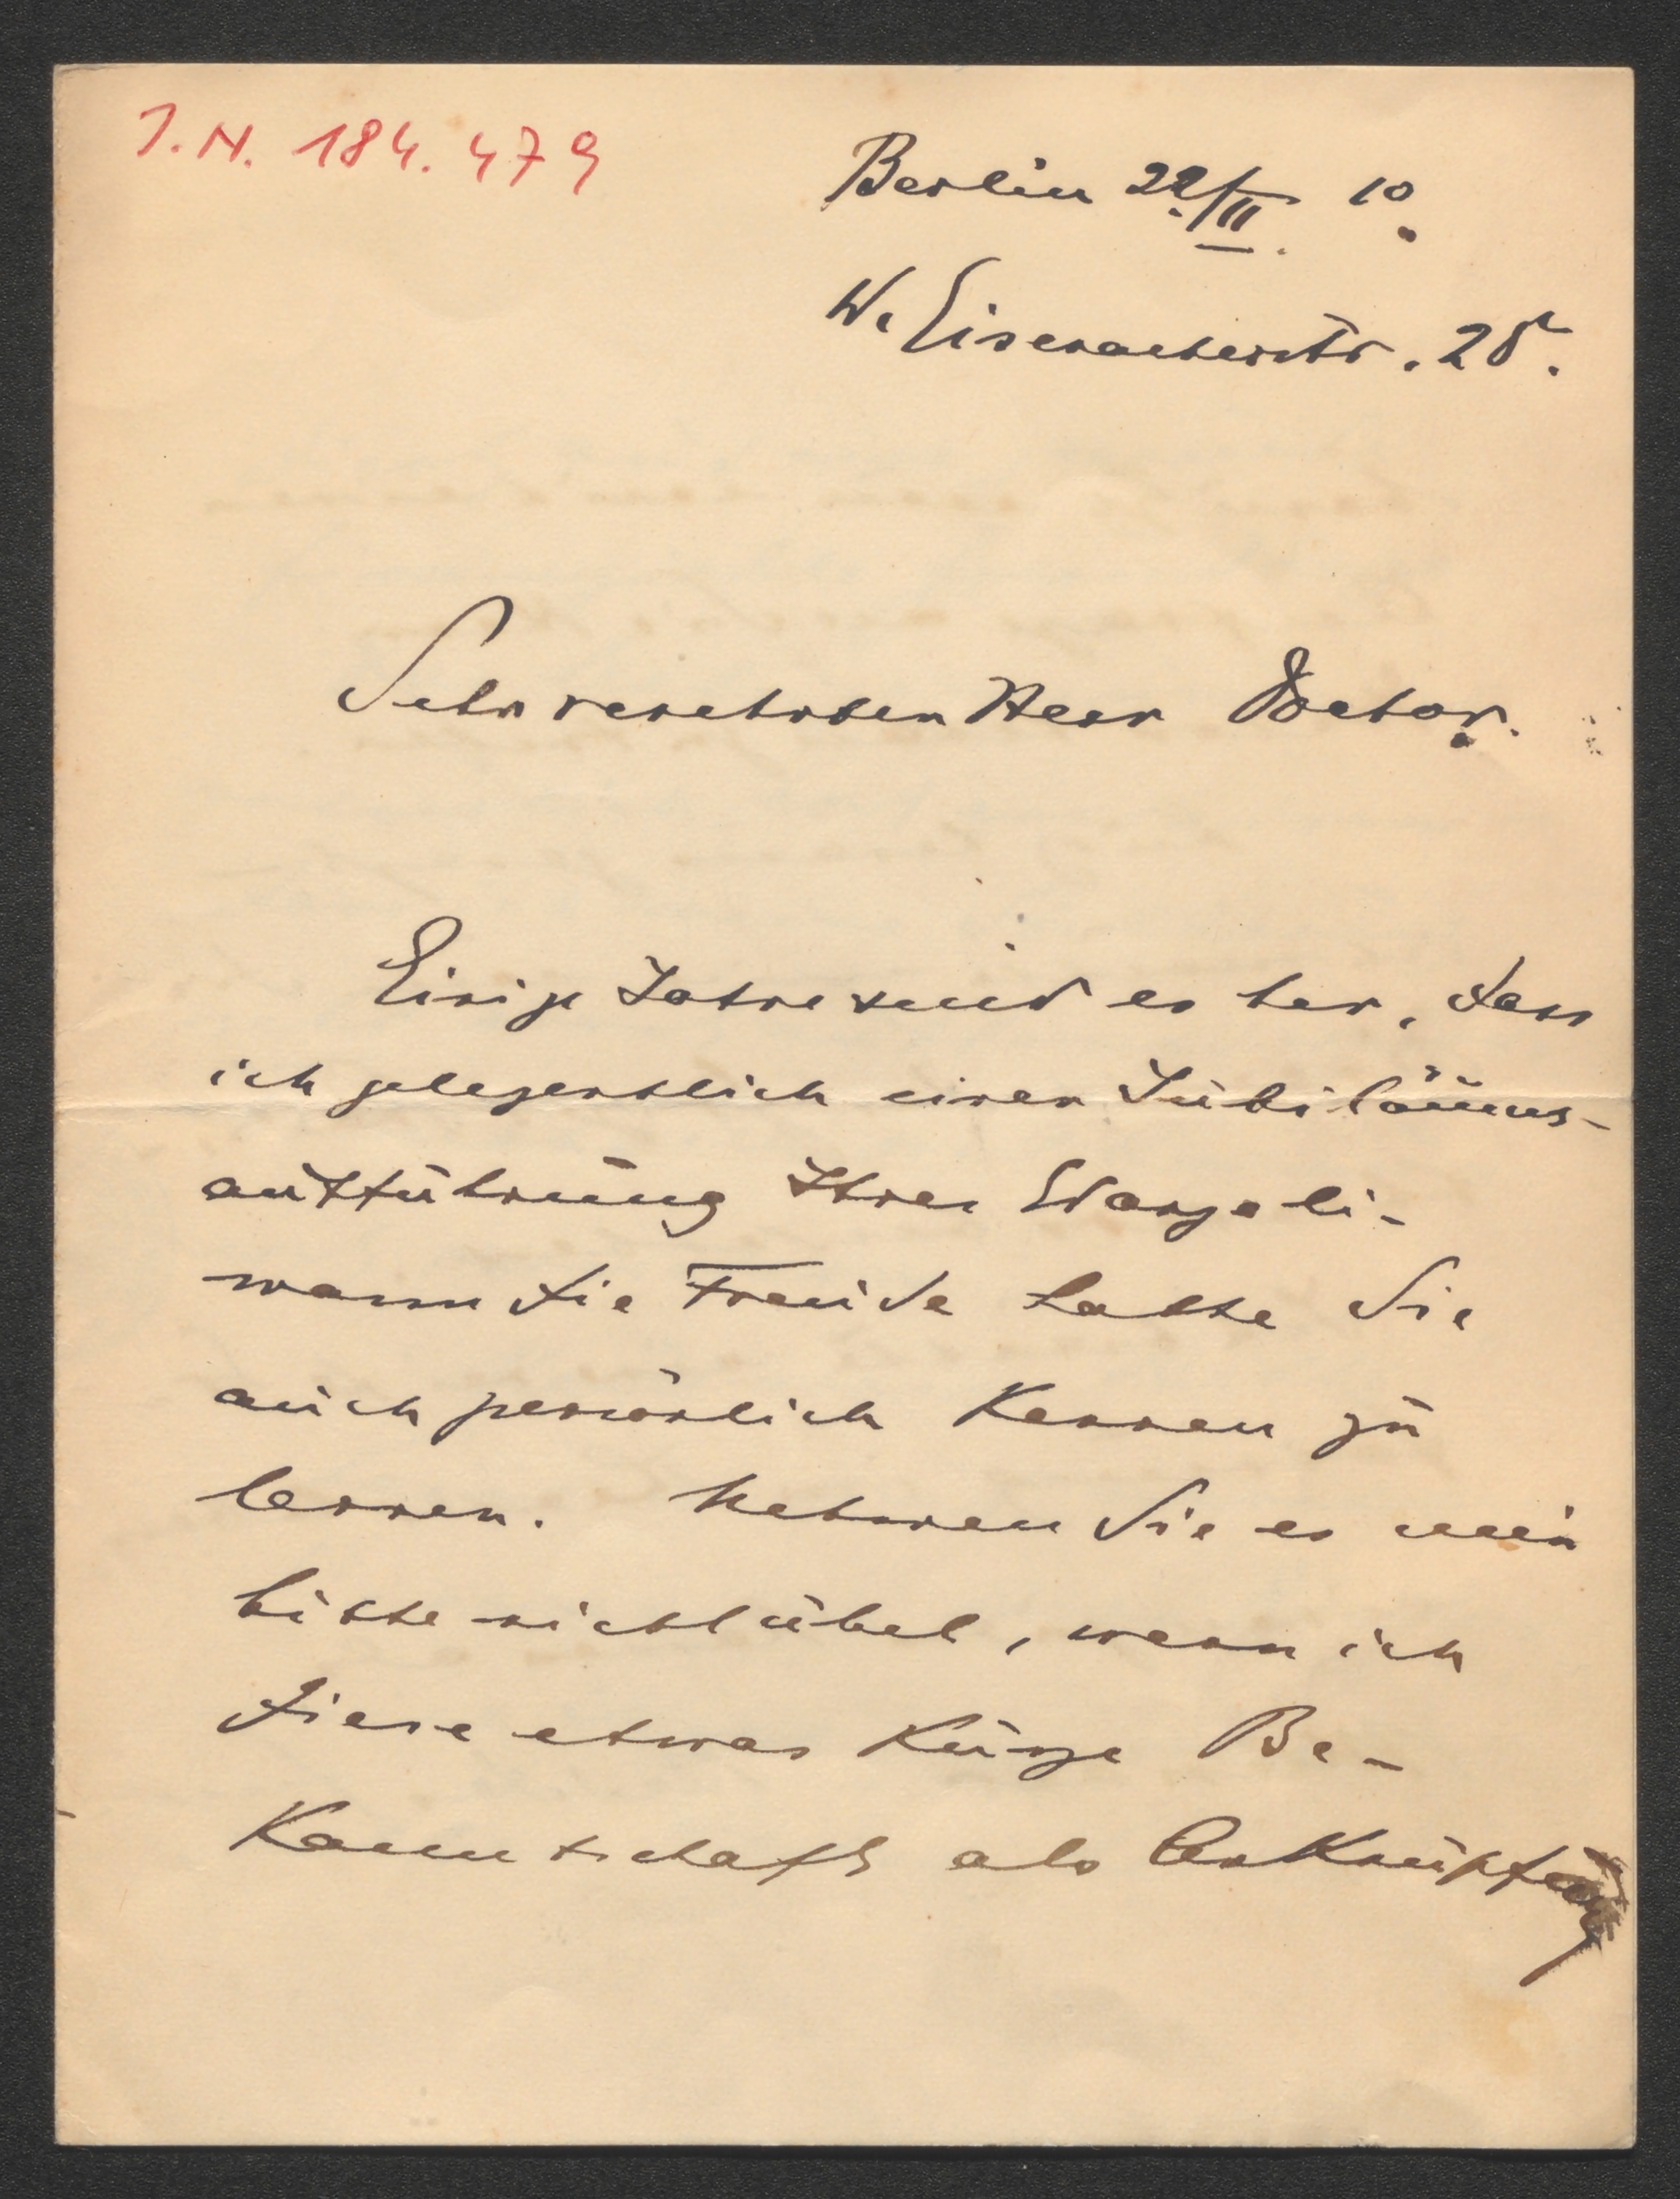 J.N. 184.479
Berlin 22/II. 10.
W. Eisenacherstr. 25.
Sehr verehrter Herr Doctor.
Einige Jahre sind es her, dass
ich gelegentlich einer Jubiläums-
aufführung Ihres Evangeli-
mann die Freude hatte Sie
auch persönlich kennen zu
lernen. Nehmen Sie es mir
bitte nicht übel, wenn ich
diese etwas kurze Be-
kanntschaft als Anknüpfung